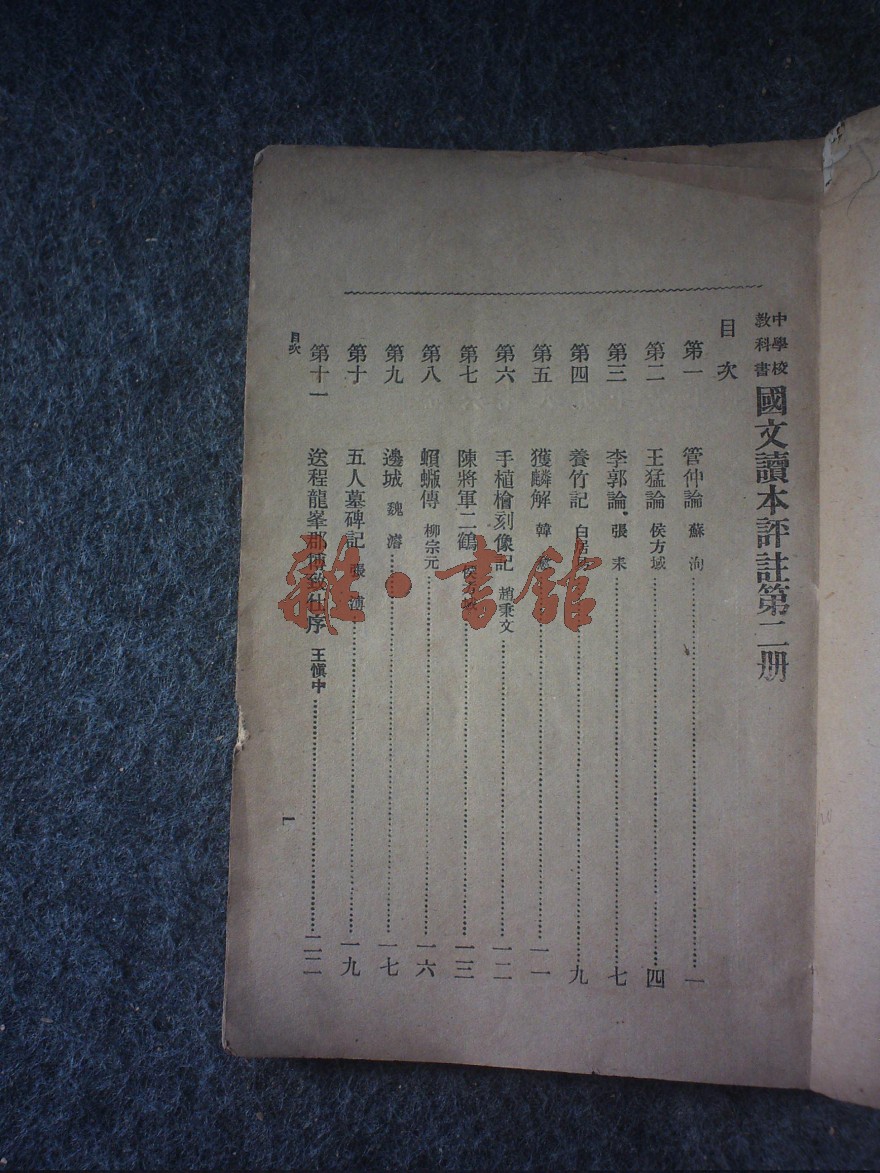 中學校
教科書
國文讀本評註第二册
目次
第一 管仲論 蘇洵 一
第二 王猛論 侯方域 四
第三 李郭論 張耒 七
第四 養竹記 白居易 九
第五 獲麟解 韓 一一
第六 手植檜刻像記 趙秉文 一二
第七 陳將軍二鶴 侯方域 一三
第八 蝜蝂傳 柳宗元 一六
第九 邊城 魏濬 一七
第十 五人墓碑記 張溥 一九
第十一 送程龍峯郡博致仕序 王愼中 二二
目次
一
雜·書館